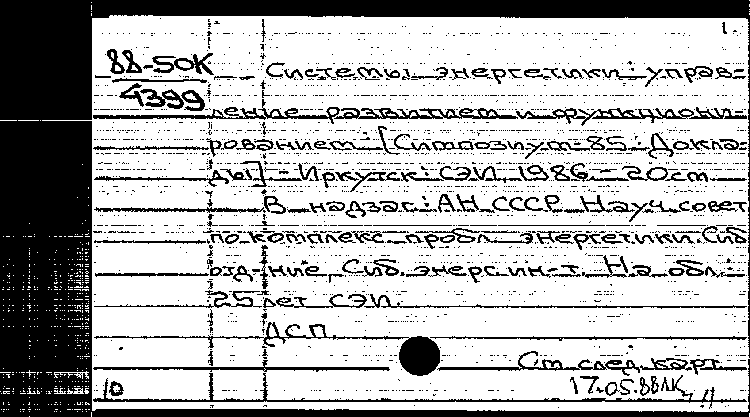 1.
88-50К
4399
Системы энергетики: управ-
ление развитием и функциони-
рованием: [Симпозиум-85: Докла-
ды] - Иркутск: СЭИ, 1986 - 20см
В надзаг.: АН СССР. Науч. совет
по комплекс. пробл. энергетики. Сиб
отд-ние, Сиб. энерг. ин-т. На обл.:
25 лет СЭИ.
ДСП.
См. след. карт.
17.05.88ЛК
10